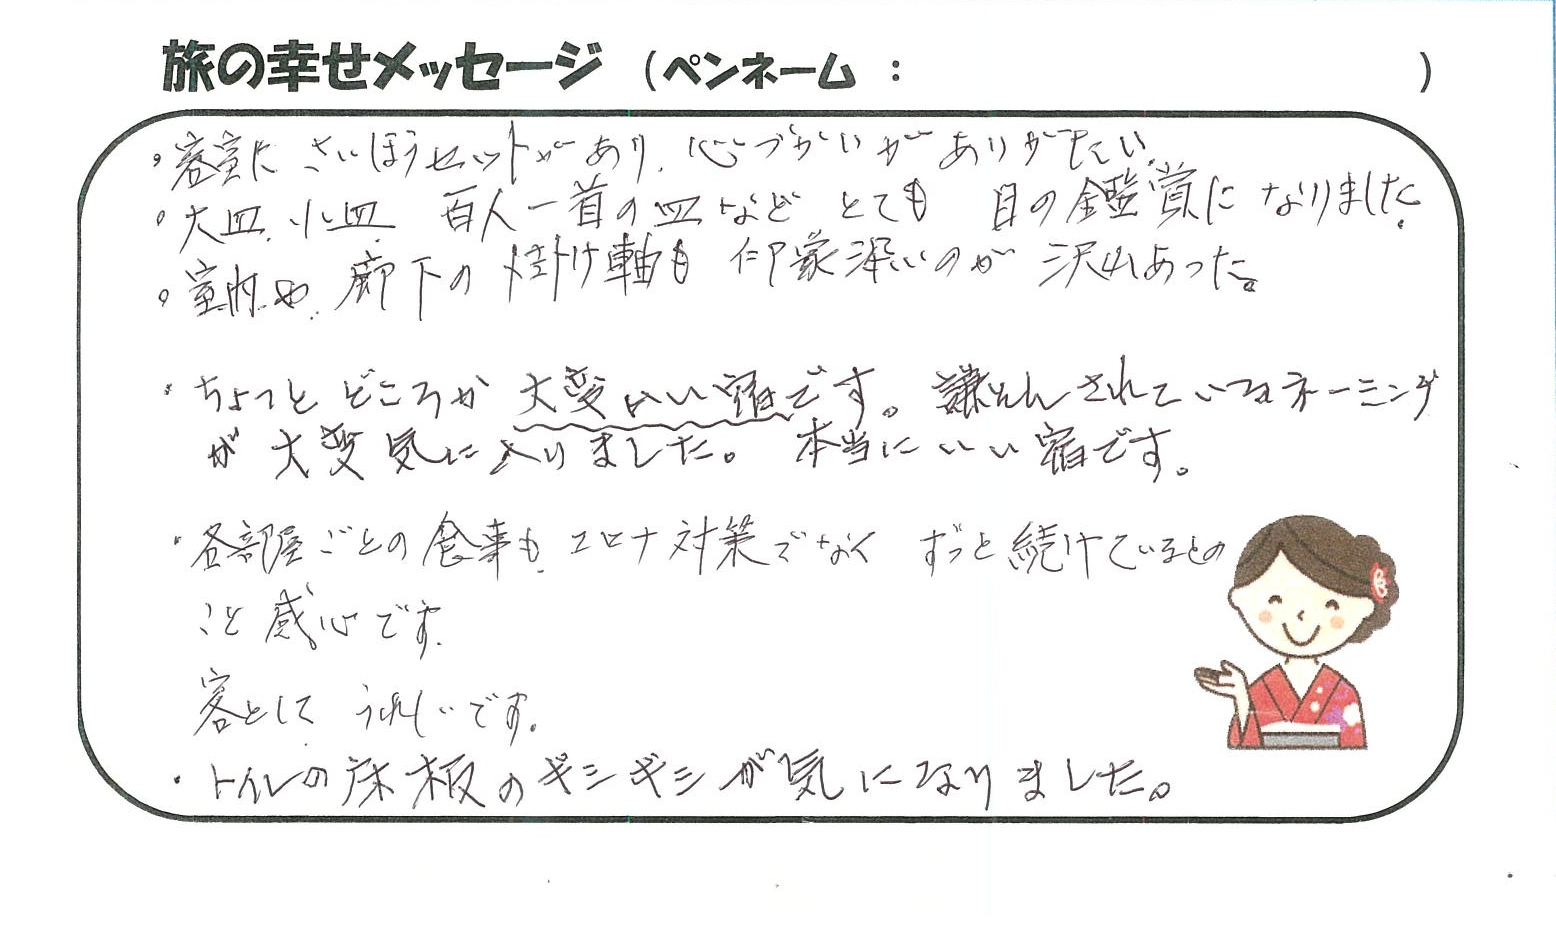 旅の幸せメッセージ （ペンネーム ： ）
・客室に さいほうセットがあり、心づかいがありがたい。
・大皿、小皿、百人一首の皿など とても 目の鑑賞になりました。
・室内や、廊下の掛け軸も 印象深いのが 沢山あった。
・ちょっとどころか 大変いい宿です。謙そんされているネーミング
が 大変気に入りました。本当にいい宿です。
・各部屋ごとの食事も、コロナ対策でなく ずっと続けているとの
こと 感心です。
客として うれしいです。
・トイレの床板のギシギシが気になりました。